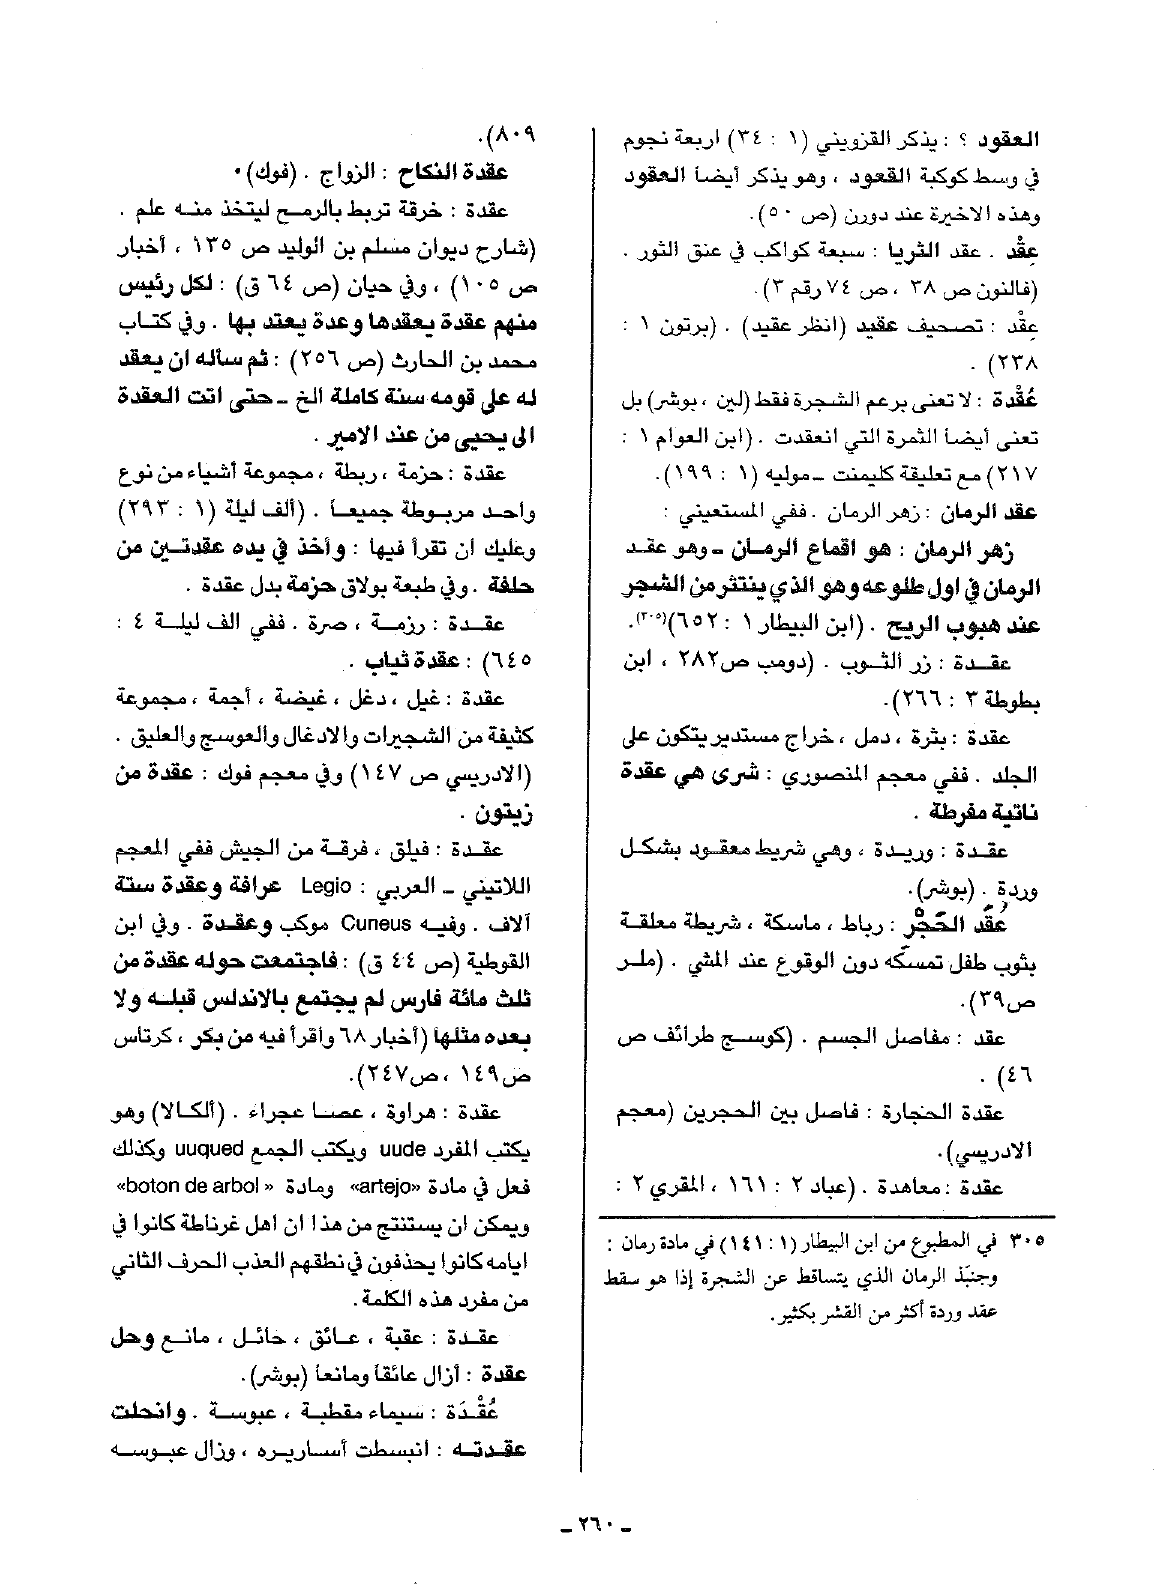 العقود ؟ : يذكر القزويني (١ : ٣٤) اربعة نجوم
في وسط كوكبة القعود ، وهو يذكر أيضاً العقود
وهذه الاخيرة عند دورن (ص ٥٠).
عِقْد . عقد الثريا : سبعة كواكب في عنق الثور .
(فالنون ص ٣٨ ، ص ٧٤ رقم ٣).
عِقْد : تصحيف عقيد (انظر عقيد) . (برتون ١ :
٢٣٨) .
عُقْدة : لا تعنى برعم الشجرة فقط (لين ، بوشر) بل
تعنى أيضاً الثمرة التي انعقدت . (ابن العوام ١ :
٢١٧) مع تعليقة كليمنت ـ موليه (١ : ١٩٩).
عقد الرمان : زهر الرمان . ففي المستعيني :
زهر الرمان : هو اقماع الرمان ـ وهو عقد
الرمان في اول طلوعه وهو الذي ينتثر من الشجر
عند هبوب الريح . (ابن البيطار ١ : ٦٥٢)(٣٠٥).
عقدة : زر الثوب . (دومب ص ٢٨٢ ، ابن
بطوطة ٣ : ٢٦٦).
عقدة : بثرة ، دمل ، خراج مستدير يتكون على
الجلد . ففي معجم المنصوري : شرى هي عقدة
ناتية مفرطة .
عقدة : وريدة ، وهي شريط معقود بشكل
وردة . (بوشر).
عُقَد الحَجْر : رباط ، ماسكة ، شريطة معلقة
بثوب طفل تمسكه دون الوقوع عند المشي . (ملر
ص٣٩).
عقد : مفاصل الجسم . (كوسج طرائف ص
٤٦) .
عقدة الحجارة : فاصل بين الحجرين (معجم
الادريسي).
عقدة : معاهدة . (عباد ٢ : ١٦١ ، المقري ٢ :
٣٠٥ في المطبوع من ابن البيطار (١ : ١٤١) في مادة رمان :
وجنبّذ الرمان الذي يتساقط عن الشجرة إذا هو سقط
عقد وردة أكثر من القشر بكثير.
٨٠٩).
عقدة النكاح : الزواج . (فوك) •
عقدة : خرقة تربط بالرمح ليتخذ منه علم .
(شارح ديوان مسلم بن الوليد ص ١٣٥ ، أخبار
ص ١٠٥) ، وفي حيان (ص ٦٤ ق) : لكل رئيس
منهم عقدة يعقدها وعدة يعتد بها . وفي كتاب
محمد بن الحارث (ص ٢٥٦) : ثم ساله ان يعقد
له على قومه سنة كاملة الخ ـ حتى اتت العقدة
الى يحيى من عند الامير .
عقدة : حزمة ، ربطة ، مجموعة أشياء من نوع
واحد مربوطة جميعاً . (ألف ليلة (١ : ٢٩٣)
وعليك ان تقرأ فيها : وأخذ في يده عقدتين من
حلفة . وفي طبعة بولاق حزمة بدل عقدة .
عقدة : رزمة ، صرة . ففي الف ليلة ٤ :
٦٤٥) : عقدة ثياب .
عقدة : غيل ، دغل ، غيضة ، أجمة ، مجموعة
كثيفة من الشجيرات والادغال والعوسج والعليق .
(الادريسي ص ١٤٧) وفي معجم فوك : عقدة من
زيتون .
عقدة : فيلق ، فرقة من الجيش ففي المعجم
اللاتيني ـ العربي : Legio عرافة وعقدة ستة
آلاف . وفيه Cuneus موكب وعقدة . وفي ابن
القوطية (ص ٤٤ ق) : فاجتمعت حوله عقدة من
ثلث مائة فارس لم يجتمع بالاندلس قبله ولا
بعده مثلها (أخبار ٦٨ واقرأ فيه من بكر ، كرتاس
ص١٤٩ ، ص٢٤٧).
عقدة : هراوة ، عصا عجراء . (ألكالا) وهو
يكتب المفرد uude ويكتب الجمع uuqued وكذلك
فعل في مادة «artejo» ومادة «boton de arbol»
ويمكن ان يستنتج من هذا ان اهل غرناطة كانوا في
ايامه كانوا يحذفون في نطقهم العذب الحرف الثاني
من مفرد هذه الكلمة.
عقدة : عقبة ، عائق ، حائل ، مانع وحل
عقدة : أزال عائقاً ومانعاً (بوشر).
عُقْدَة : سيماء مقطبة ، عبوسة . وانحلت
عقدته : انبسطت أساريره ، وزال عبوسه
ـ ٢٦٠ ـ